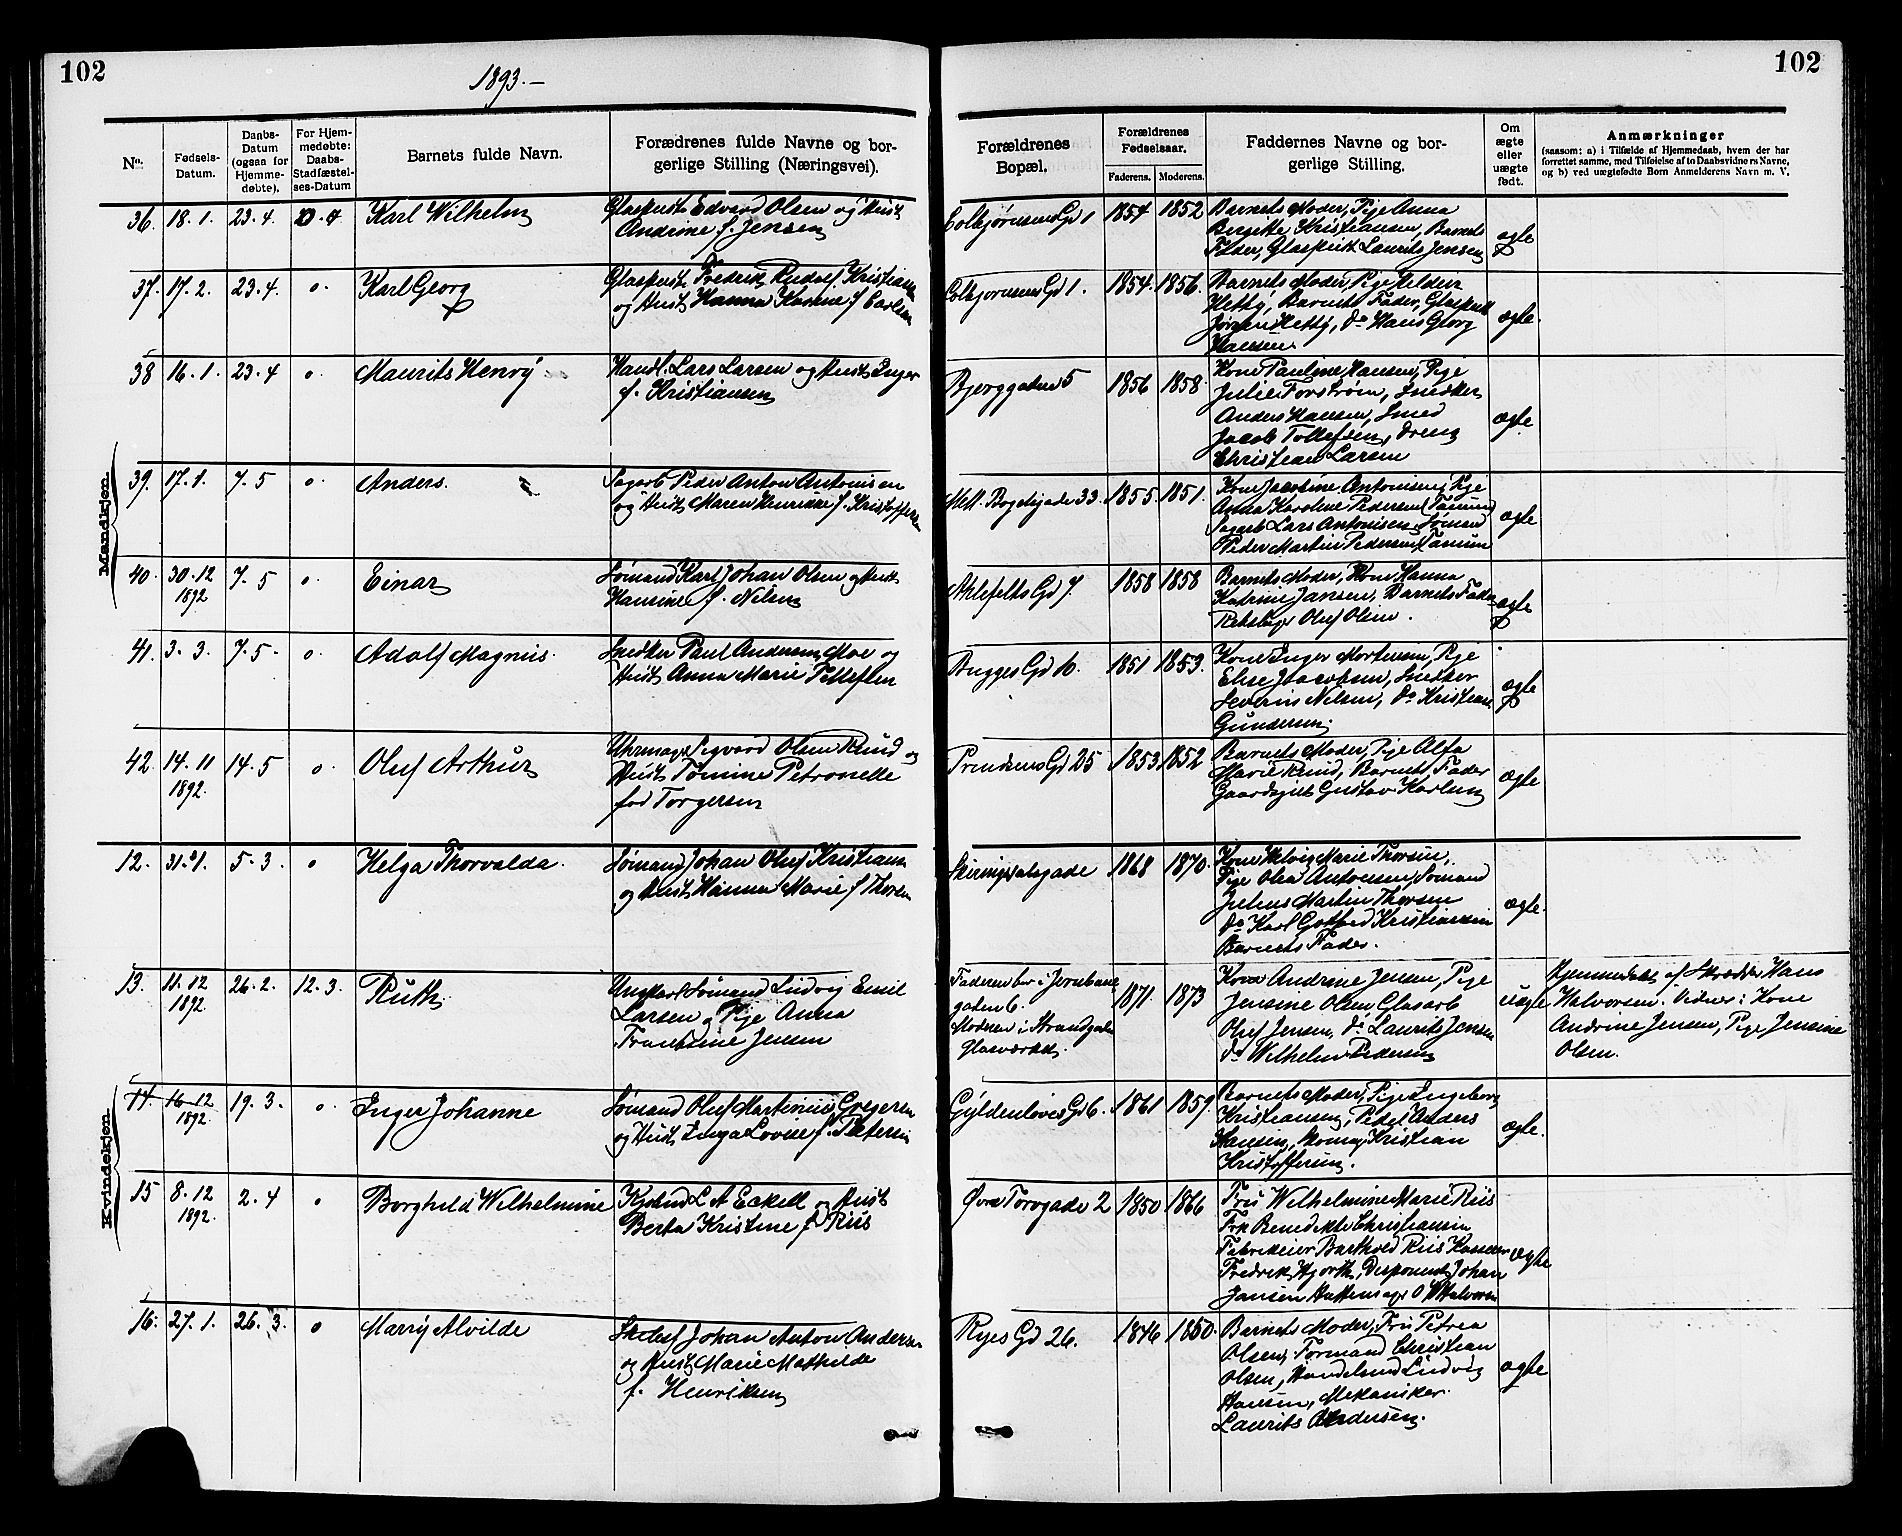 102
1893.—
102
No.
Fødsels-
Datum.
Daabs-
Datum
(ogsaa for
Hjemme-
døbte).
For Hjem-
medøbte:
Daabs-
Stadfæstel-
ses-Datum
Barnets fulde Navn.
Forædrenes fulde Navne og bor-
gerlige Stilling (Næringsvei).
Forældrenes
Bopæl.
Forældrenes
Fødselsaar.
Faderens.
Moderens.
Faddernes Navne og bor-
gerlige Stilling.
Om
ægte
eller
uægte
født.
Anmærkninger
(saasom: a) i Tilfælde af Hjemmedaab, hvem der har
forrettet samme, med Tilføielse af to Daabsvidners Navne,
og b) ved uægtefødte Børn Anmelderens Navn m. V.
Mandkjøn.
36. 18. 1. 23. 4. Karl Wilhelm
Edvard Olsen og Hust
Andrine f. Jensen
Gd 1 1854 1852
Barnets Moder, Pige Anna
Birgitte Kristiansen, Barnets
Fader, Laurits Jensen
ægte
37. 17. 2. 23. 4. o. Karl Georg
Fredrik Rudolf Kristiansen
og Hust Hanna f. Carlsen
Gd 1. 1854. 1856.
Barnets Moder, Pige
Barnets Fader,
do Hans Georg
Hansen.
ægte.
38 16. 1. 23. 4 o. Maurits Henry
Handl. Lars Larsen og Hust Inger
f. Kristiansen
Bjerggaden 5 1856 1858.
Kone Pauline Hansen, Pige
Julie Forstrøm, Snedker
Anders Hansen, Smed
Jacob Tollefsen, Dreng
Christian Larsen
ægte
39. 17. 1. 7. 5 o. Anders.
Sagarb Peder Anton Antonisen
og Hust Maren Henrikke f. Kristoffersen
Mell. Bøgelsgade 33. 1855. 1851.
Kone Antonisen, Pige
Anna Karoline Pedersen (Tanum)
Sagarb Lars Antonisen, Sømand
Peder Martin Pedersen, Tanum
ægte.
40. 30. 12 7. 5 o. Einar
1892
Sømand Karl Johan Olsen og Hust
Hansine f. Nilsen
Ahlefelts Gd 7. 1858 1858
Barnets Moder, Kone Hanna
Katrine Jansen, Barnets Fader
Rebslager Oluf Olsen.
ægte
41. 3. 3. 7. 5. o. Adolf Magnus.
Snedker Paul Andersen Moe og
Hust Anna Marie Tollefsen
Bugges Gd 10. 1851 1853.
Kone Inger Mortensen, Pige
Elise Jacobsen, Snedker
Severin Nelsen, do Kristian
Gundersen.
ægte
42. 14. 11 14. 5 o. Oluf Arthur
1892.
Uhrmager Sigvard Olsen Ruud og
Hust Tomine Petronelle
fød Torgersen
Gd 25 1853. 1852
Barnets Moder, Pige Alfa
Marie Ruud, Barnets Fader
Gaardsgut Gustav Karlsen
ægte
Kvindekjøn.
12. 31. 1. 5. 3. o Helga Thorvalda.
Sømand Johan Oluf Kristiansen
og Hust Hanna Marie f Thorsen
Skiringssalsgade 1868 1870.
Kone Marie Thorsen,
Pige Olea Antonsen, Sømand
Julius Martin Thorsen
do Karl Gotfred Kristiansen
Barnets Fader.
ægte.
13. 11. 12 26. 2. 12. 3. Ruth
1892.
Ungkarl Sømand Ludvig Emil
Larsen og Pige Anna
Jensen
Faderen bor i Jernbane
gaden 6.
Moderen i Strandgaden
Glasværket.
1871. 1873
Kone Andrine Jensen, Pige
Jensine Olsen, Glasarb
Oluf Jensen, do Laurits Jensen
do Wilhelm Pedersen
uægte
Hjemmedøbt af Skrædder Hans
Halvorsen. Vidner: Kone
Andrine Jensen, Pige Jensine
Olsen.
14. 16. 12 19. 3. o. Inger Johanne
1892.
Sømand Oluf Martinius Gregersen
og Hust Inga Lovise f. Petersen
Gyldenløves Gd 6. 1861 1859.
Barnets Moder, Pige Ingeborg
Kristiansen, Peder Anders
Hansen, Kristian
Kristoffersen.
ægte.
15 8. 12 2. 4 o Borghild Wilhelmine
1892.
Kjøbmd L A Eckell og Hust
Berta Kristine f Riis
Øvre Torvgade 2 1850 1866
Fru Wilhelmine Marie Riis
Frk Benedikte Christiansen
Fabrikeier Barthold Riis Kasserer
Fredrik Hjorth, Disponent Johan
Jansen Hattemager O Halvorsen
ægte
16. 27. 1. 26. 3. o Marry Alvilde
Johan Anton Andersen
og Hust Marie Mathilde
f. Henriksen
Ryes Gd 26. 1846 1850.
Barnets Moder, Fru Petrea
Olsen, Formand Christian
Olsen, Handelsmd Ludvig
Hansen, Mekaniker
Laurits Andersen.
ægte